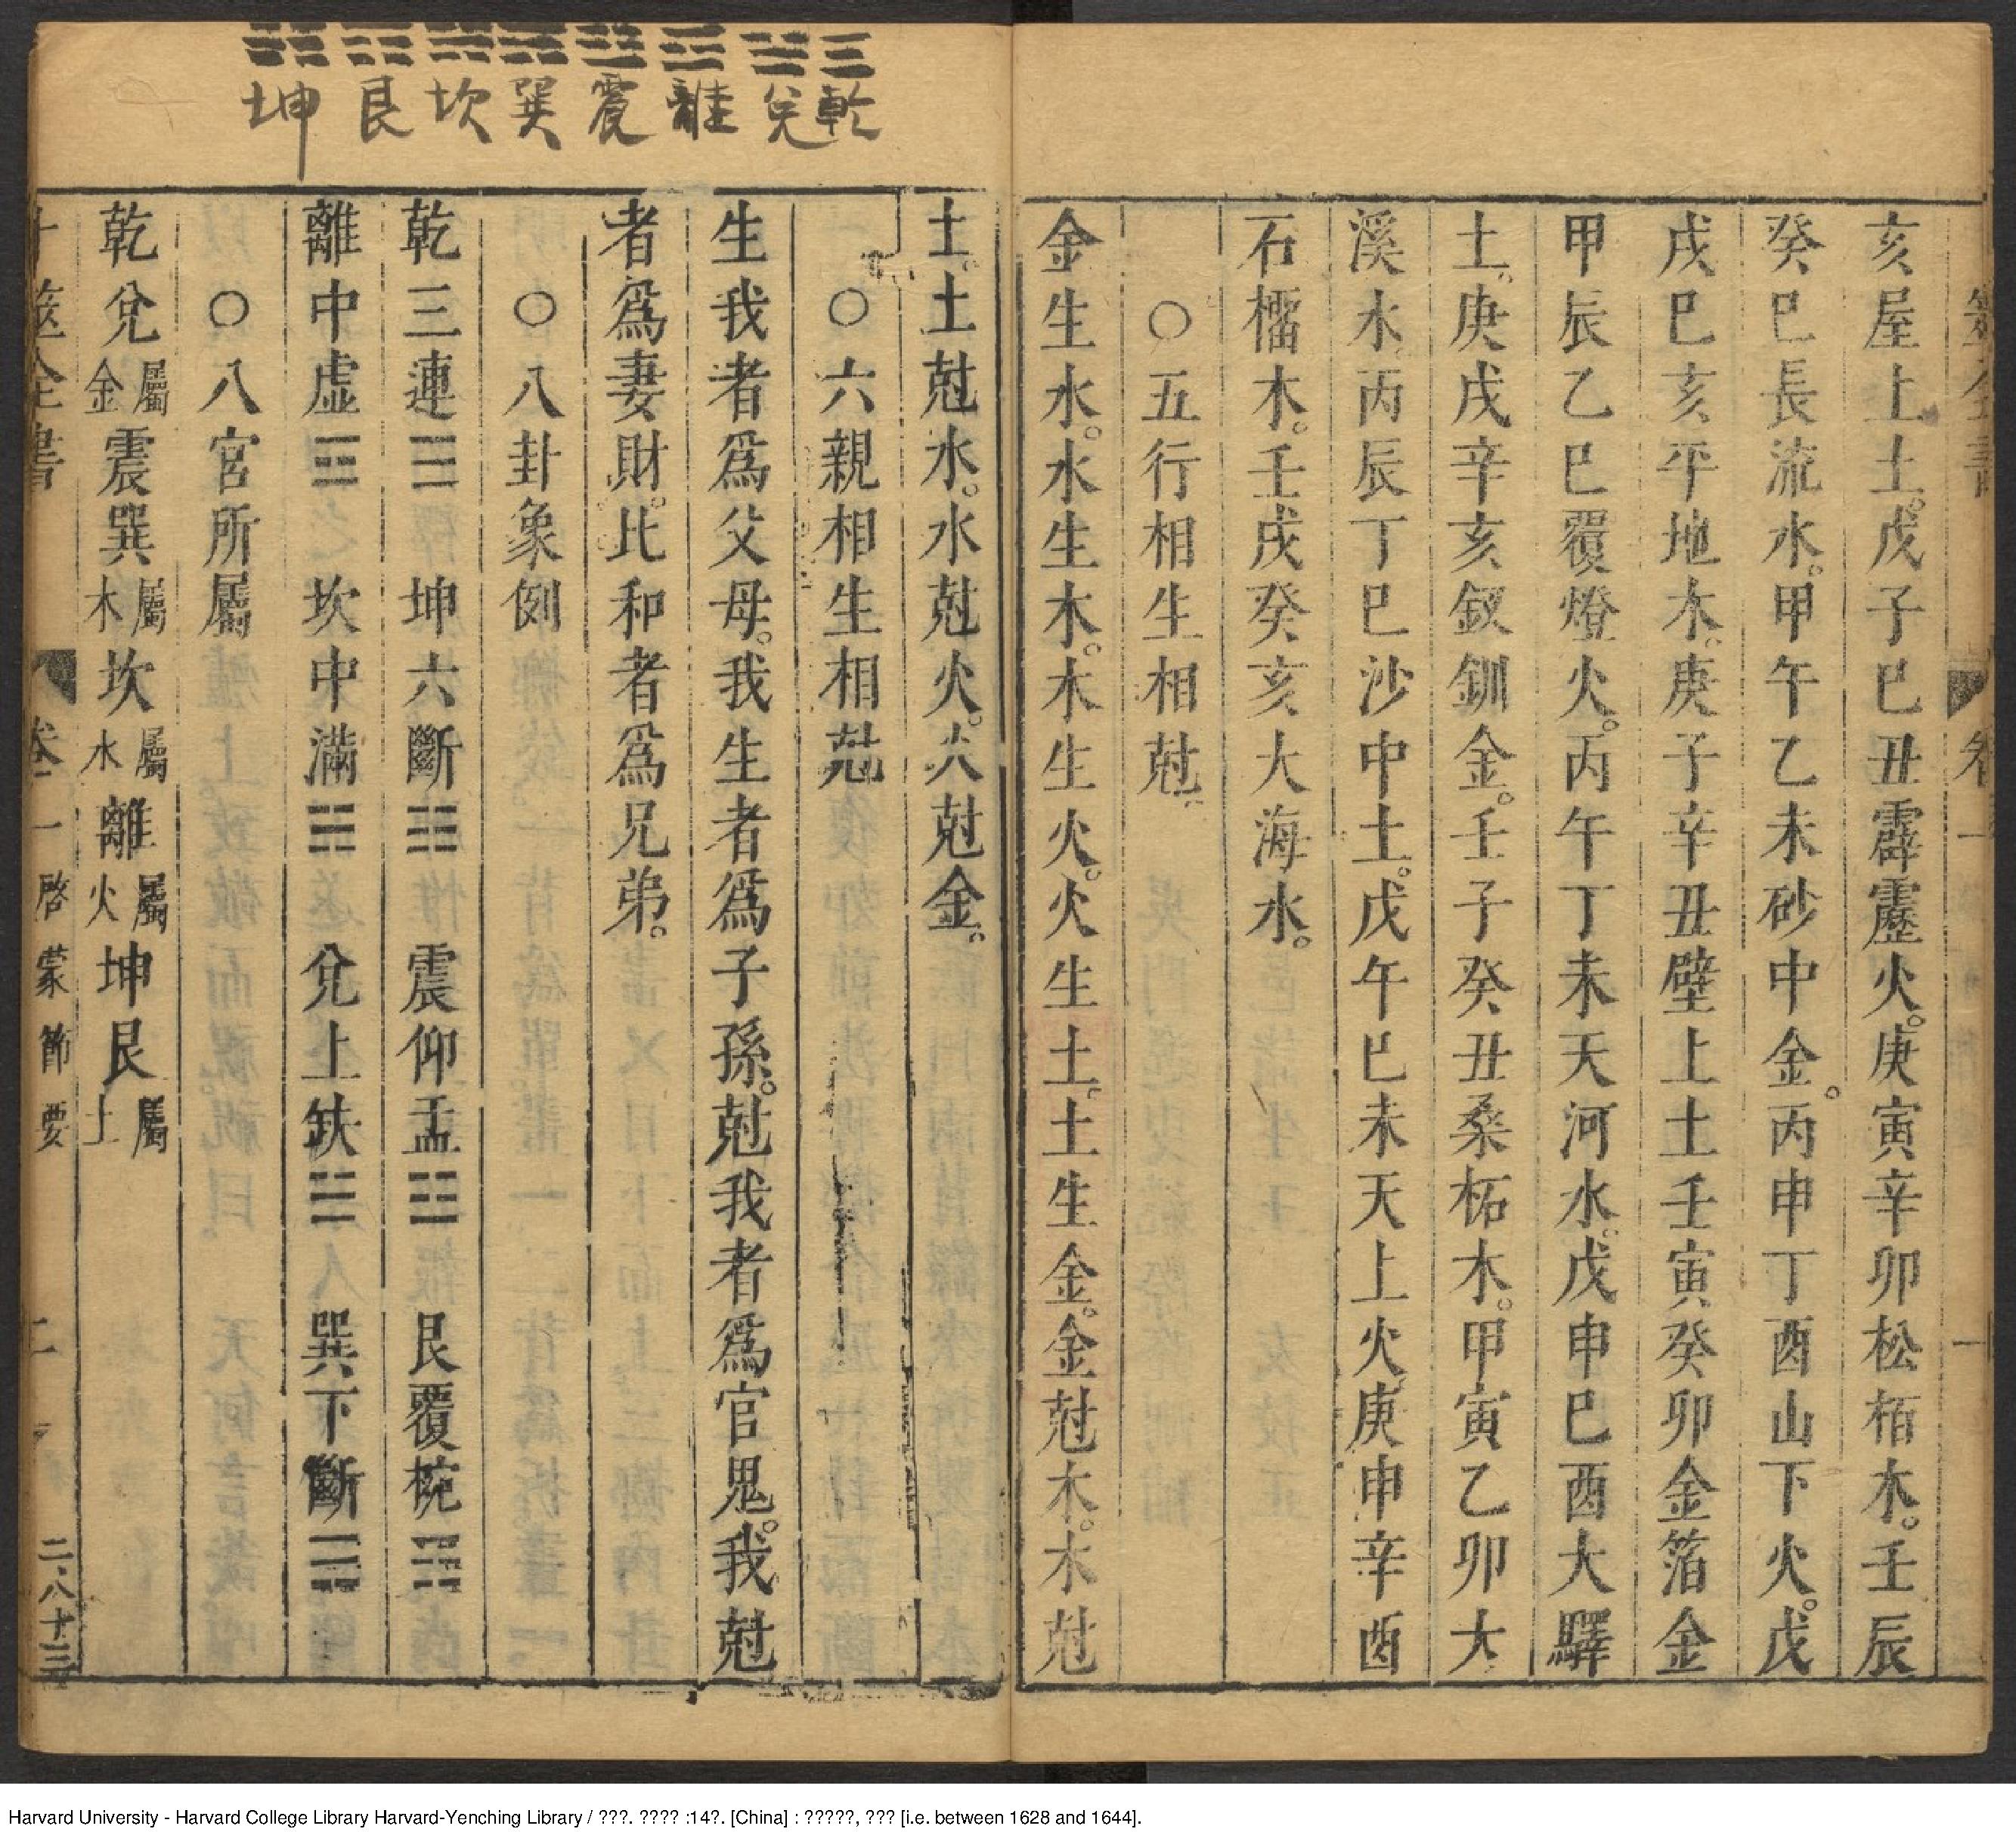 亥屋上土。戊子巳丑霹靂火。庚寅辛卯松栢木。壬辰
癸巳長流水。甲午乙未砂中金。丙申丁酉山下火。戊
戌巳亥平地木。庚子辛丑壁上土壬寅癸卯金箔金
甲辰乙巳覆燈火。丙午丁未天河水。戊申巳酉大驛
土。庚戌辛亥釵釧金。壬子癸丑桑柘木。甲寅乙卯大
溪水丙辰丁巳沙中土。戊午巳未天上火庚申辛酉
石橊木。壬戌癸亥大海水。
○五行相生相尅。
金生水。水生木。木生火。火生土。土生金。金尅木。木尅
土。土尅水。水尅火。火尅金。
○六親相生相尅
生我者爲父母。我生者爲子孫。尅我者爲官鬼。我尅
者爲妻財。比和者爲兄弟。
○八卦象例
乾三連☰ 坤六斷☷ 震仰盂☳ 艮覆椀☶
離中虛☲ 坎中滿☵ 兌上缺☱ 巽下斷☴
○八宮所屬
乾兌屬金震巽屬木坎屬水離屬火坤艮屬土
卷一 啓蒙節要 二 二八十三
乾 兌 離 震 巽 坎 艮 坤
Harvard University - Harvard College Library Harvard-Yenching Library / ???. ???? :14?. [China] : ?????, ??? [i.e. between 1628 and 1644].